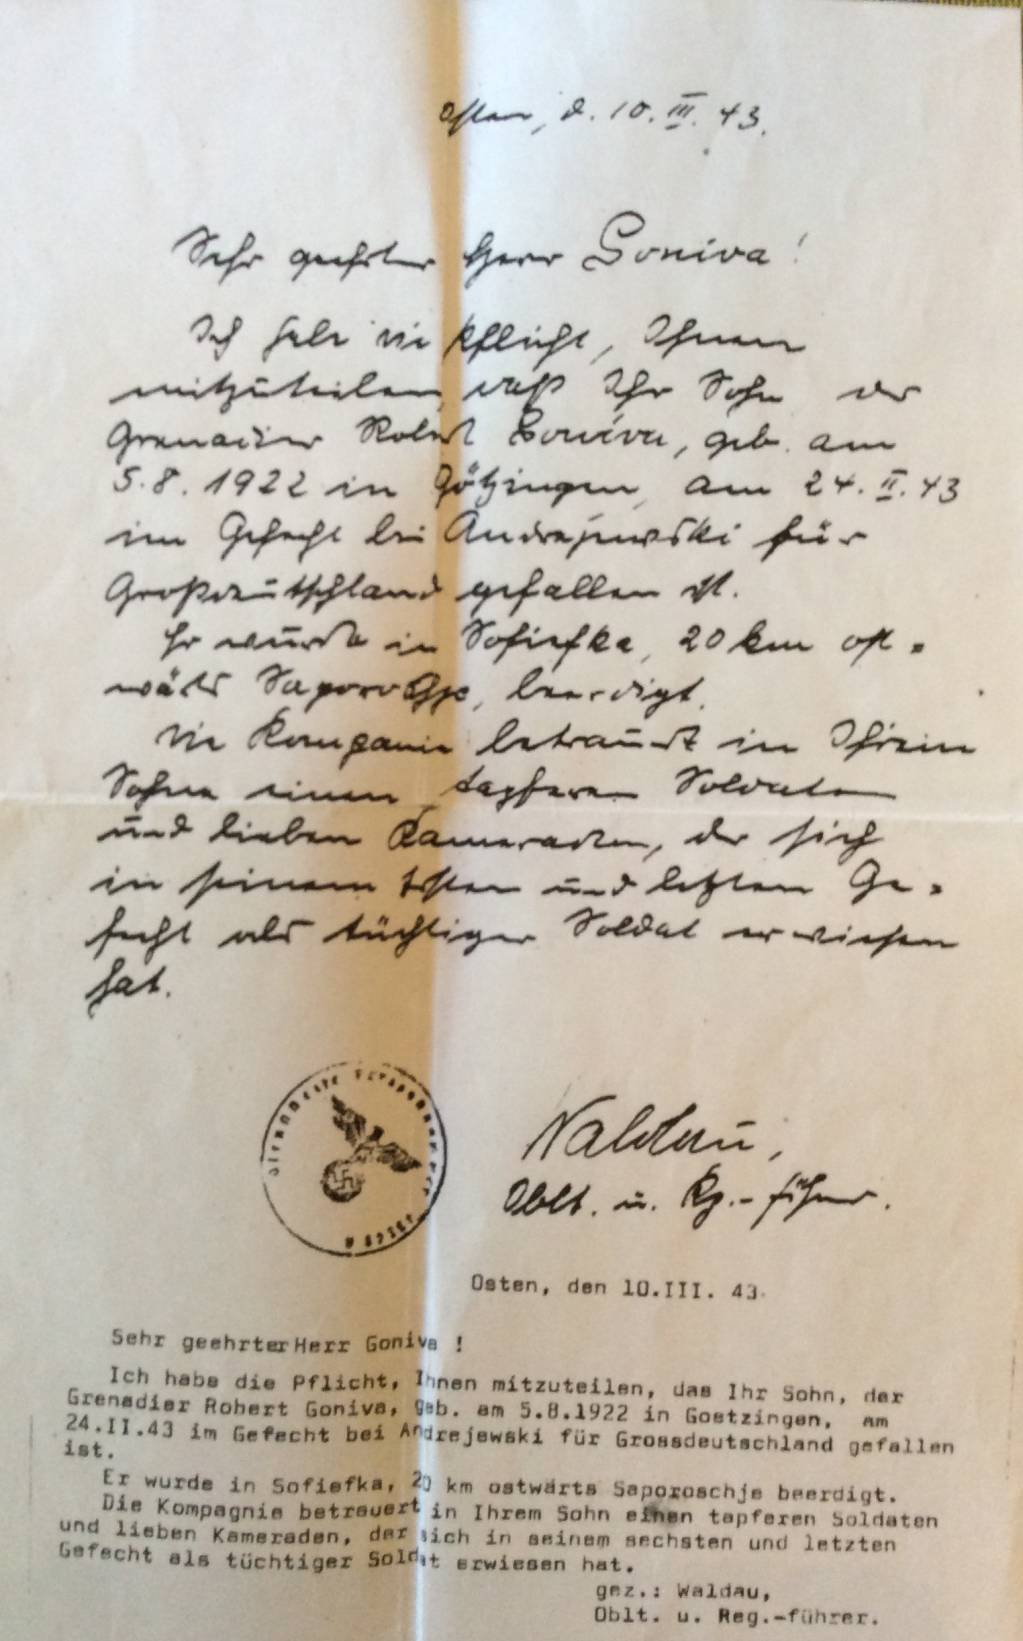 Osten, d. 10. III. 43.
Sehr geehrter Herr Goniva!
Ich habe die Pflicht, Ihnen
mitzuteilen, daß Ihr Sohn der
Grenadier Robert Goniva, geb. am
5.8.1922 in Götzingen, am 24.II.43
im Gefecht bei Andrejewski für
Großdeutschland gefallen ist.
Er wurde in Sofiefka, 20 km ost=
wärts Saporoshje, beerdigt.
Die Kompanie betrauert in Ihrem
Sohne einen tapferen Soldaten
und lieben Kameraden, der sich
in seinem ersten und letzten Ge=
fecht als tüchtiger Soldat erwiesen
hat.
Dienststelle Feldpostnummer
Waldau,
Oblt. u. Kp.-führer.
Osten, den 10.III. 43.
Sehr geehrter Herr Goniva !
Ich habe die Pflicht, Ihnen mitzuteilen, das Ihr Sohn, der
Grenadier Robert Goniva, geb. am 5.8.1922 in Goetzingen, am
24.II.43 im Gefecht bei Andrejewski für Grossdeutschland gefallen
ist.
Er wurde in Sofiefka, 20 km ostwärts Saporoschje beerdigt.
Die Kompagnie betrauert in Ihrem Sohn einen tapferen Soldaten
und lieben Kameraden, der sich in seinem sechsten und letzten
Gefecht als tüchtiger Soldat erwiesen hat.
gez.: Waldau,
Oblt. u. Reg.-führer.